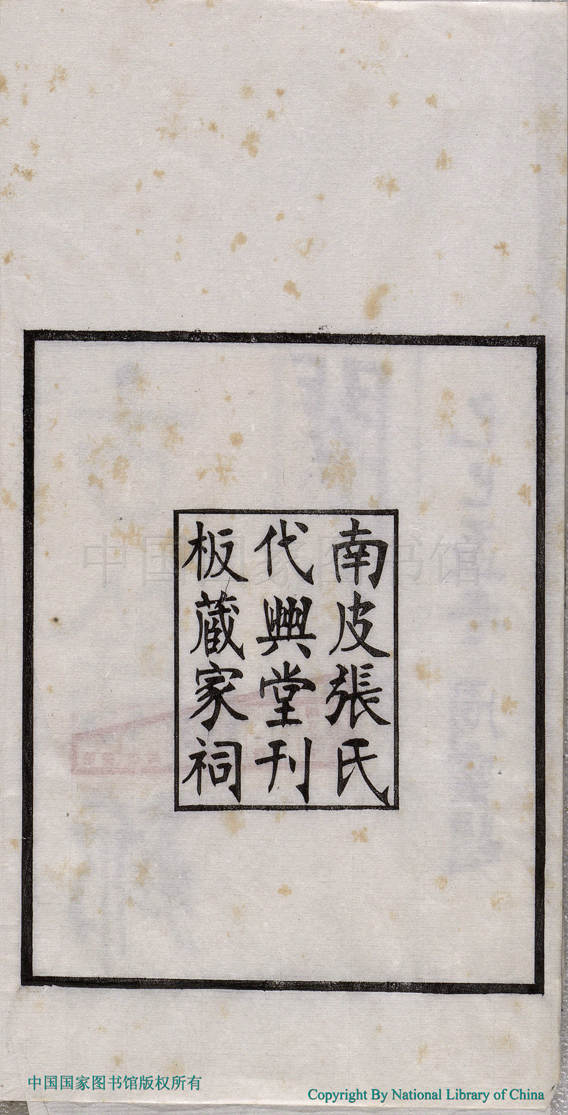 南皮張氏
代興堂刊
板蔵家祠
中国国家图书馆
中国国家图书馆版权所有
Copyright By National Library of China